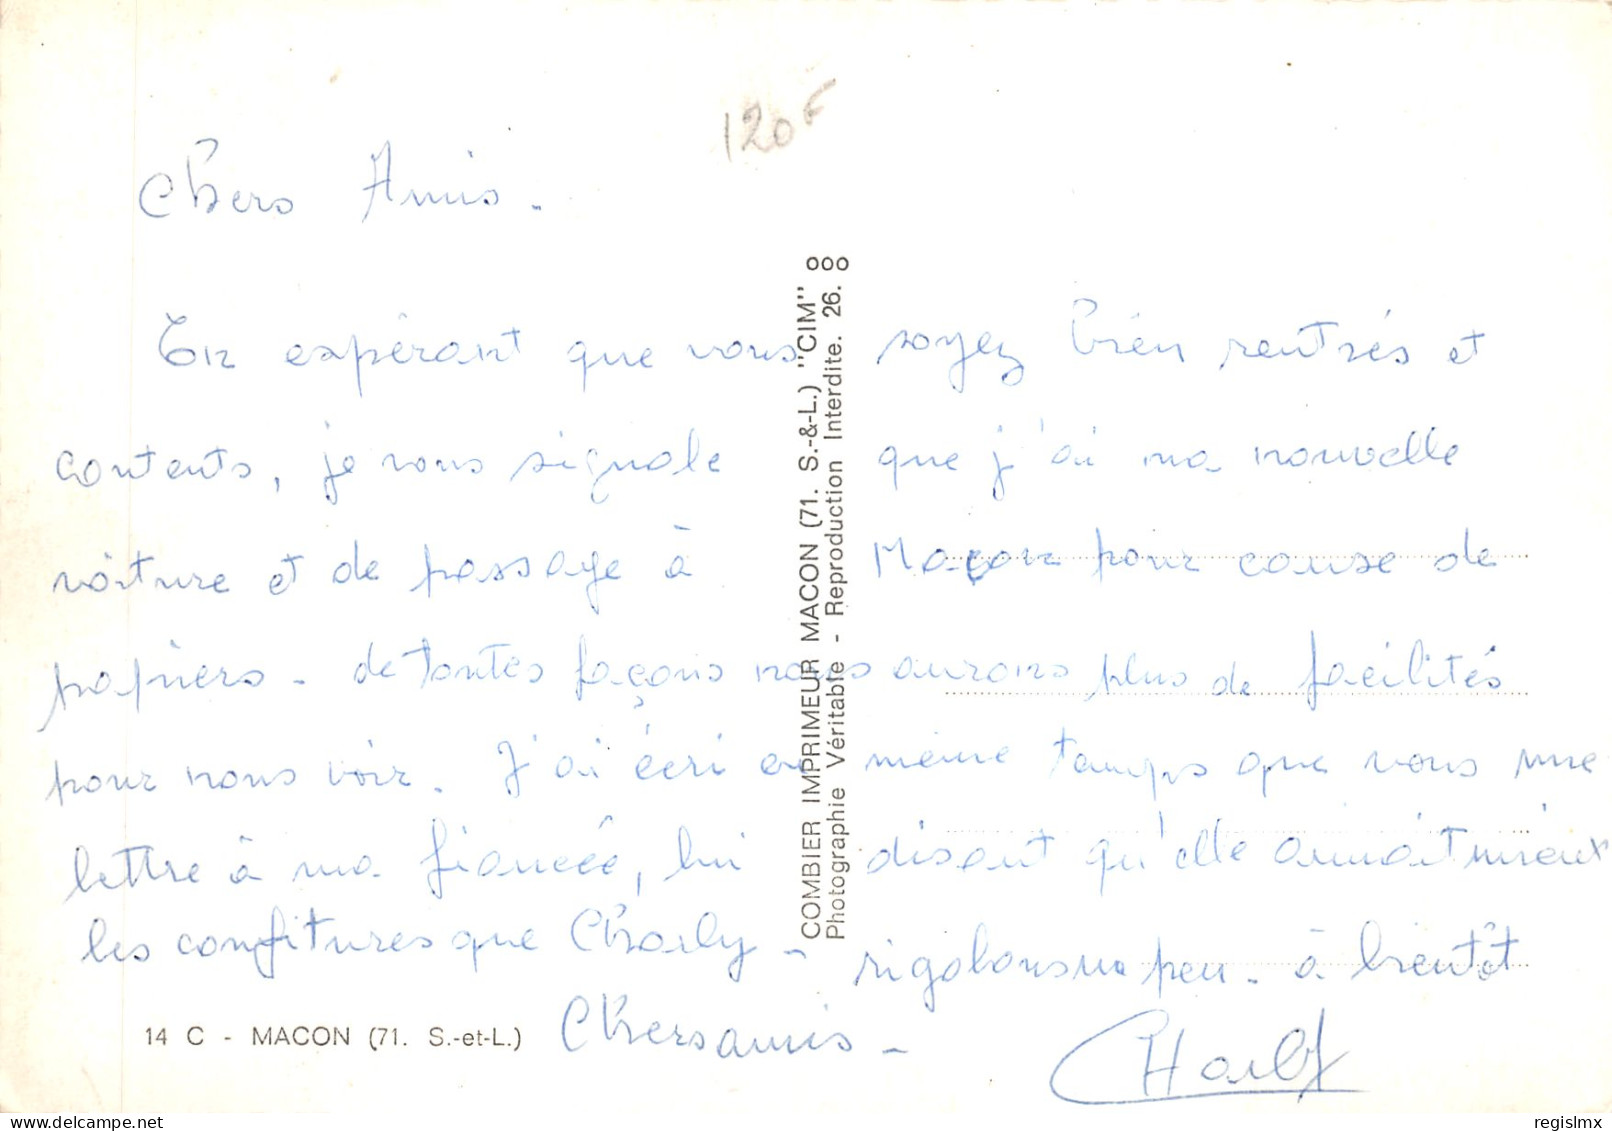 120F
Chers Amis.
En espérant que vous soyez bien rentrés et
contents, je vous signale que j'ai ma nouvelle
voiture et de passage à Maçon pour cause de
papiers. de toutes façons nous aurons plus de facilités
pour nous voir. J'ai écri en même temps que vous une
lettre à ma fiancée, lui disant qu'elle aimait mieux
les confitures que Charly - rigolons un peu. à bientôt
Chers amis -
Charly
14 C - MACON (71. S.-et-L.)
COMBIER IMPRIMEUR MACON (71. S.-&-L.) "CIM"
Photographie Véritable - Reproduction Interdite. 26.
regislmx